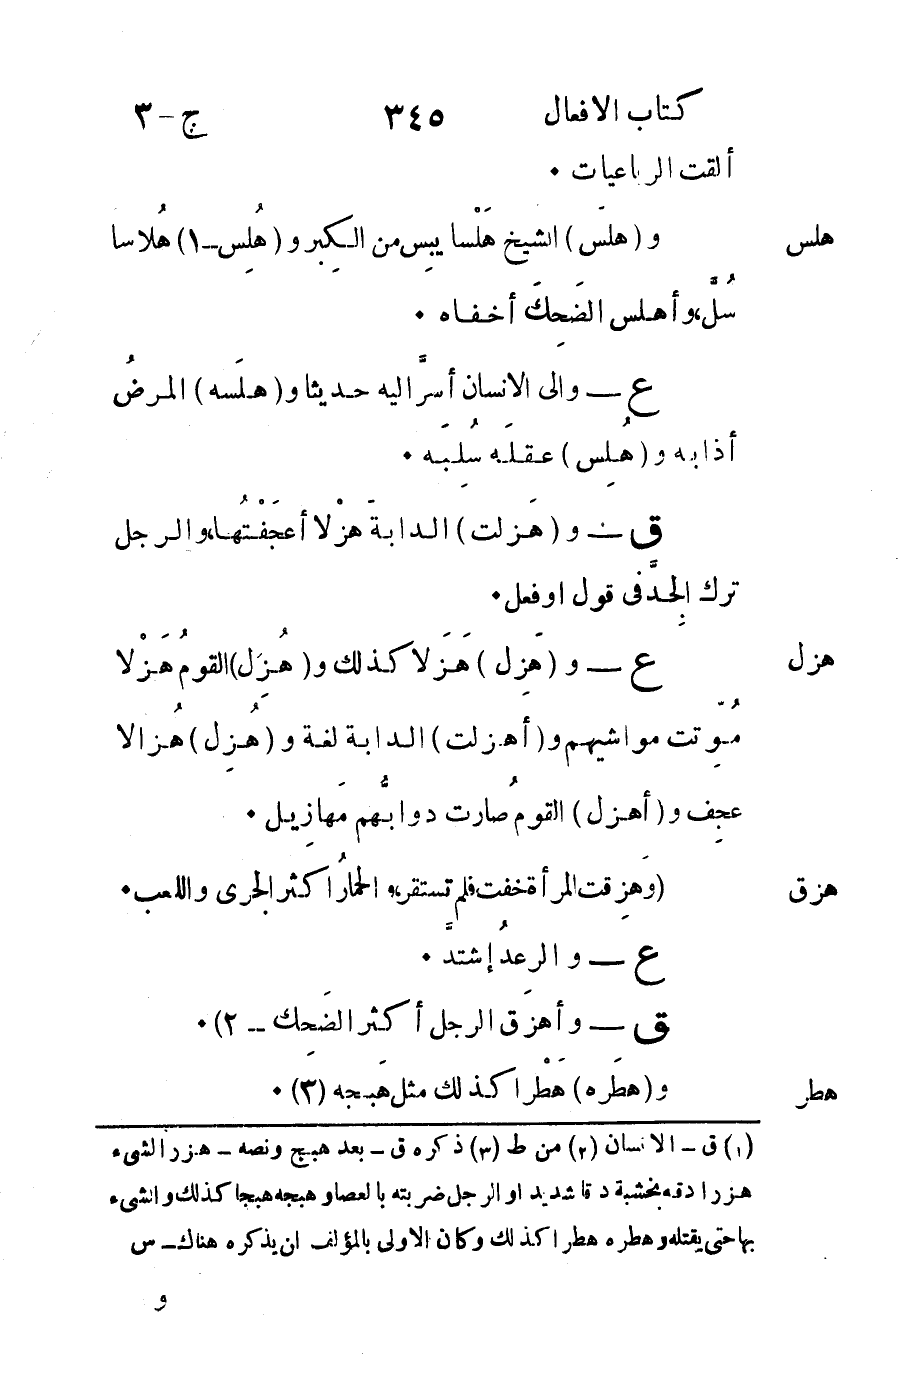 كتاب الافعال ٣٤٥ ج-٣
ألقت الرباعيات ٠
هلس و (هلَس) الشيخ هَلْسا يبِس من الكِبر و (هُلِس-١) هُلاسا
سُلَّ، وأهلس الضَحِكَ أخفاه ٠
ع — والى الانسان أسرَّ اليه حديثا و (هلَسه) المرضُ
أذابه و (هُلِس) عقلَه سُلِبَه ٠
ق — و (هَزلت) الدابةَ هزْلا أعجَفْتُها، والرجل
ترك الجِدَّ فى قول او فعل ٠
هزل ع — و (هَزِل) هَزَلا كذلك و (هُزِل) القومُ هَزْلا
مُوِّتت مواشيهم و (أهزلت) الدابة لغة و (هُزِل) هُزالا
عجِف و (أهزل) القومُ صارت دوابُّهم مَهازِيل ٠
هزق (وهَزِقت المرأة خفت فلم تستقر، و الحمارُ اكثر الجرى واللعب ٠
ع — و الرعدُ إشتدَّ ٠
ق — و أهزَق الرجل أكثر الضَحِك — ٢) ٠
هطر و (هطَره) هَطْرا كذلك مثل هَبجه (٣) ٠
(١) ق - الانسان (٢) من ط (٣) ذكره ق - بعد هبج ونصه - هزر الشىء
هزرا دقه بخشبة دقا شديد او الرجل ضربته بالعصا و هبجه هبجا كذلك والشىء
بها حتى يقتله و هطره هطرا كذلك وكان الاولى بالمؤلف ان يذكره هناك - س
و